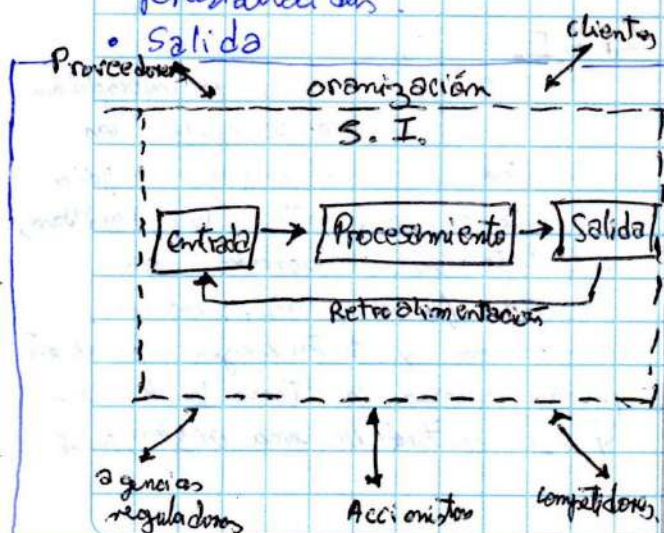 • Salida
Proveedores
clientes
oranización
S. I.
entrada
Procesamiento
Salida
Retroalimentación
agencias
reguladoras
Accionistas
competidores.